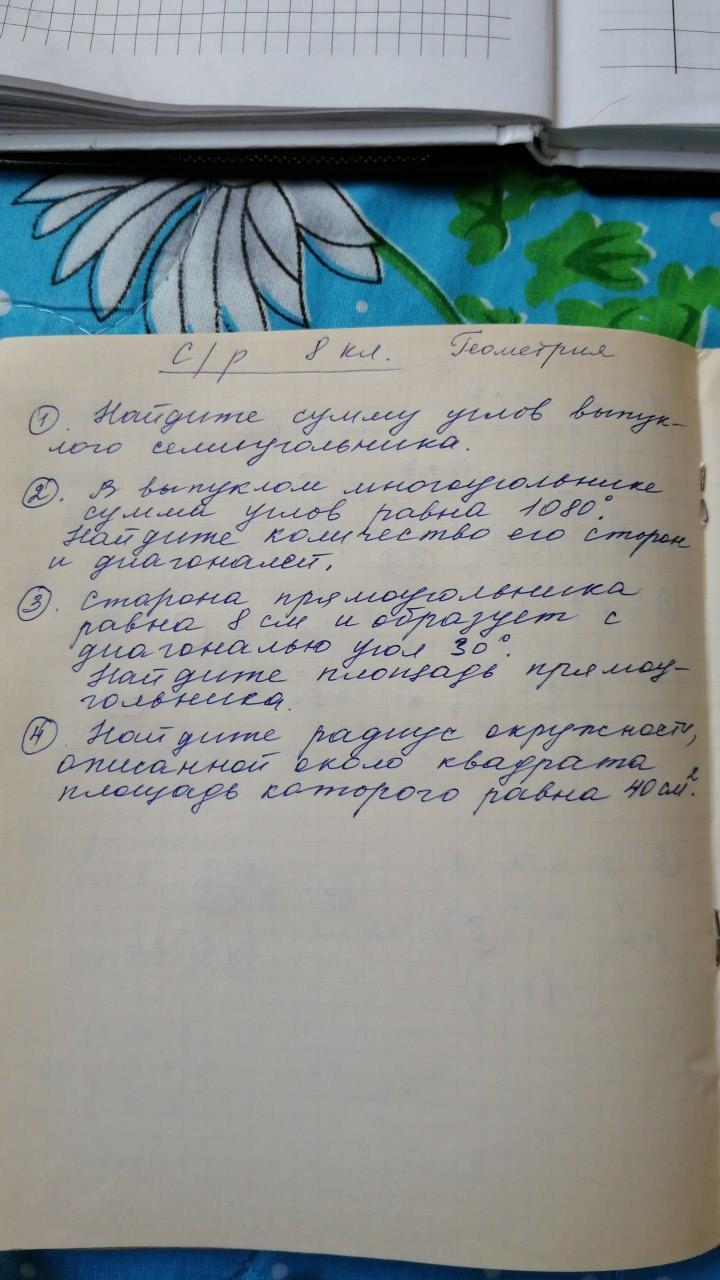 С/р 8 кл. Геометрия
1. Найдите сумму углов выпук-
лого семиугольника.
2. В выпуклом многоугольнике
сумма углов равна 1080°.
Найдите количество его сторон
и диагоналей.
3. Сторона прямоугольника
равна 8 см и образует с
диагональю угол 30°.
Найдите площадь прямоу-
гольника.
4. Найдите радиус окружности,
описанной около квадрата
площадь которого равна 40 см².